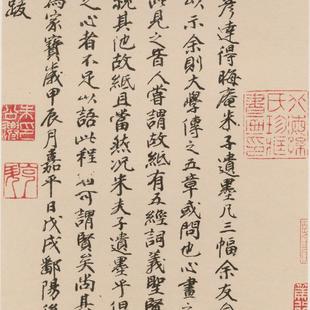 彥達得晦庵朱子遺墨凡三幅余友人
以示余則大學傳之五章或問也心畫之
此見之昔人嘗謂故紙有五經詞義聖賢
視其他故紙且當然況朱夫子遺墨乎但
之心者不足以語此程也可謂賢矣尚其
為家寶歲甲辰月嘉平日戊戌鄱陽
跋